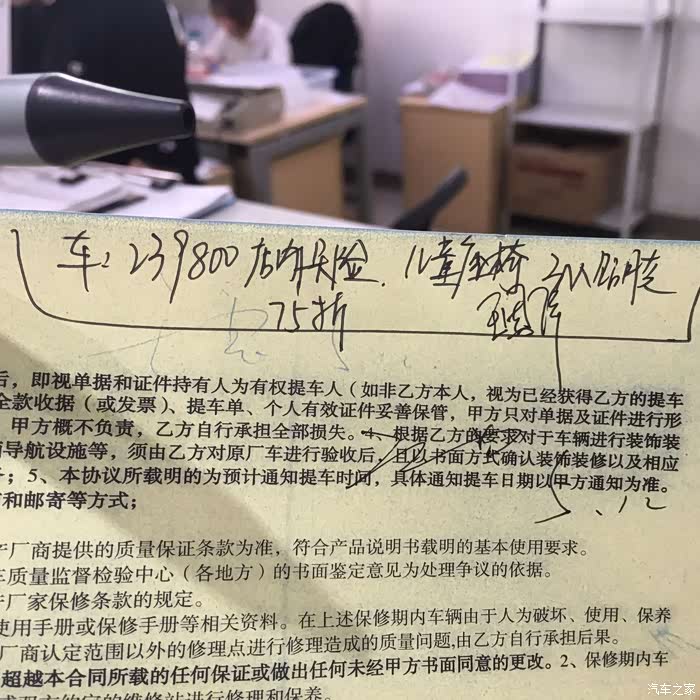 车：239800 店内保险 儿童座椅
75折
后，即视单据和证件持有人为有权提车人（如非乙方本人，视为已经获得乙方的提车
全款收据（或发票）、提车单、个人有效证件妥善保管，甲方只对单据及证件进行形
甲方概不负责，乙方自行承担全部损失。4、根据乙方的要求对于车辆进行装饰装
导航设施等，须由乙方对原厂车进行验收后，且以书面方式确认装饰装修以及相应
；5、本协议所载明的为预计通知提车时间，具体通知提车日期以甲方通知为准。
和邮寄等方式；
5.12
厂商提供的质量保证条款为准，符合产品说明书载明的基本使用要求。
车质量监督检验中心（各地方）的书面鉴定意见为处理争议的依据。
厂家保修条款的规定。
使用手册或保修手册等相关资料。在上述保修期内车辆由于人为破坏、使用、保养
厂商认定范围以外的修理点进行修理造成的质量问题,由乙方自行承担后果。
超越本合同所载的任何保证或做出任何未经甲方书面同意的更改。2、保修期内车
的维修站进行修理和保养。
汽车之家